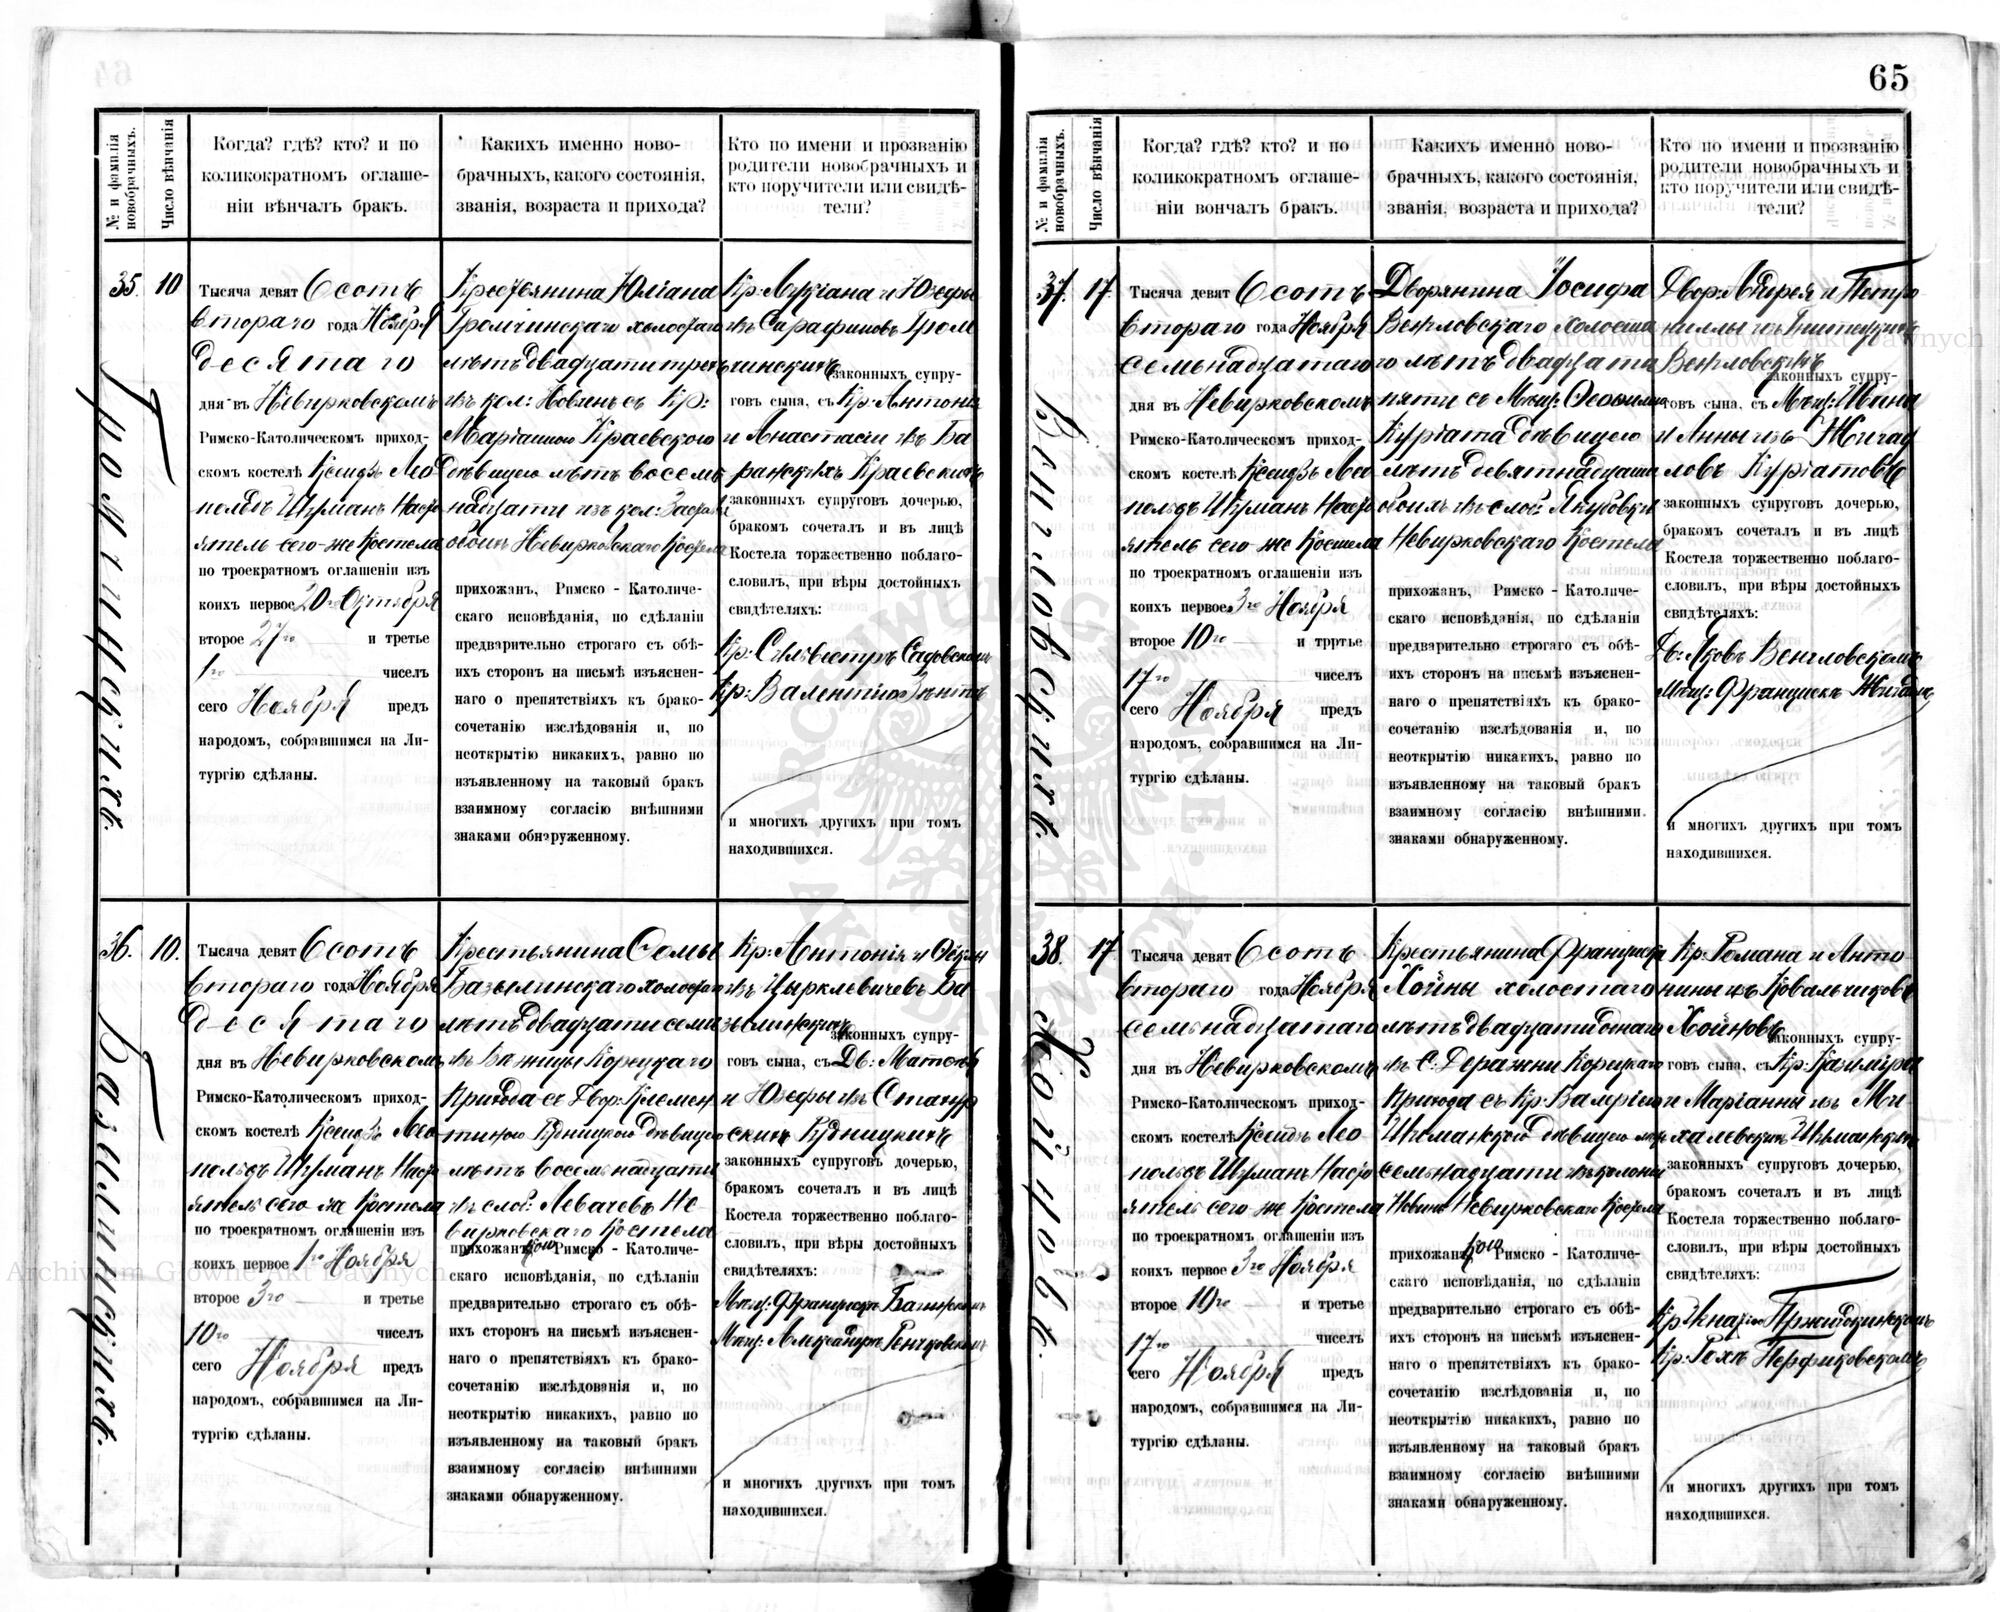 65
№ и фамилія новобрачныхъ.
Число вѣнчанія
Когда? гдѣ? кто? и по
коликократномъ оглаше-
ніи вѣнчалъ бракъ.
Какихъ именно ново-
брачныхъ, какого состоянія,
званія, возраста и прихода?
Кто по имени и прозванію
родители новобрачныхъ и
кто поручители или свидѣ-
тели?
35.
10
Громчинскихъ.
Тысяча девят сотъ
втораго года Ноября
десятаго
дня въ Невирковскомъ
Римско-Католическомъ приход-
скомъ костелѣ Ксендзъ Лео
польдъ Шуманъ Насто
ятель сего-же Костела
по троекратномъ оглашеніи изъ
коихъ первое 20го Октября
второе 27го и третье
1го чиселъ
сего Ноября предъ
народомъ, собравшимся на Ли-
тургію сдѣланы.
Крестьянина Юліана
Громчинскаго холостаго
лѣтъ двадцати трехъ
изъ кол: Новинъ съ Кр:
Маріанною Краевскою
дѣвицею лѣтъ восемь
надцати изъ кол:
обоихъ Невирковскаго Костела
прихожан, Римско - Католиче-
скаго исповѣданія, по сдѣланіи
предварительно строгаго съ обѣ-
ихъ сторонъ на письмѣ изъяснен-
наго о препятствіяхъ къ брако-
сочетанію изслѣдованія и, по
неоткрытію никакихъ, равно по
изъявленному на таковый бракъ
взаимному согласію внѣшними
знаками обнаруженному.
Кр: Лукіана и Юзефы
изъ Сарафиновъ Гром
чинскихъ законныхъ супру-
говъ сына, съ Кр: Антонія
и Анастасіи изъ Ба
ранскихъ Краевскихъ
законныхъ супруговъ дочерью,
бракомъ сочеталъ и въ лицѣ
Костела торжественно поблаго-
словилъ, при вѣры достойныхъ
свидѣтеляхъ:
Кр: Сильвестръ Садовскомъ
Кр: Валентію
и многихъ другихъ при томъ
находившихся.
36.
10.
Базылинскихъ.
Тысяча девят сотъ
втораго года Ноября
десятаго
дня въ Невирковскомъ
Римско-Католическомъ приход-
скомъ костелѣ Ксендзъ Лео
польдъ Шуманъ Насто
ятель сего же Костела
по троекратномъ оглашеніи изъ
коихъ первое 1го Ноября
второе 3го и третье
10го чиселъ
сего Ноября предъ
народомъ, собравшимся на Ли-
тургію сдѣланы.
Крестьянина
Базылинскаго холостаго
лѣтъ двадцати семи
изъ Корецкаго
Прихода съ Двор: Клемен
тиною Рудницкою дѣвицею
лѣтъ восемьнадцати
изъ слоб: Левачевъ Не-
вирковскаго Костела
прихожан Римско - Католиче-
скаго исповѣданія, по сдѣланіи
предварительно строгаго съ обѣ-
ихъ сторонъ на письмѣ изъяснен-
наго о препятствіяхъ къ брако-
сочетанію изслѣдованія и, по
неоткрытію никакихъ, равно по
изъявленному на таковый бракъ
взаимному согласію внѣшними
знаками обнаруженному.
Кр: Антонія и
изъ Цыркевичевъ Ба
зылинскихъ законныхъ супру-
говъ сына, съ Дв: Матвѣя
и Юзефы изъ
Рудницкихъ
законныхъ супруговъ дочерью,
бракомъ сочеталъ и въ лицѣ
Костела торжественно поблаго-
словилъ, при вѣры достойныхъ
свидѣтеляхъ:
Мѣщ: Францискъ
Мѣщ: Александръ
и многихъ другихъ при томъ
находившихся.
№ и фамилія новобрачныхъ.
Число вѣнчанія
Когда? гдѣ? кто? и по
коликократномъ оглаше-
ніи вончалъ бракъ.
Какихъ именно ново-
брачныхъ, какого состоянія,
званія, возраста и прихода?
Кто по имени и прозванію
родители новобрачныхъ и
кто поручители или свидѣ-
тели?
37.
17.
Венгловскихъ.
Тысяча девят сотъ
втораго года Ноября
семьнадцатаго
дня въ Невирковскомъ
Римско-Католическомъ приход-
скомъ костелѣ Ксендзъ Лео
польдъ Шуманъ Насто
ятель сего-же Костела
по троекратномъ оглашеніи изъ
коихъ первое 3го Ноября
второе 10го и трртье
17го чиселъ
сего Ноября предъ
народомъ, собравшимся на Ли-
тургію сдѣланы.
Дворянина Іосифа
Венгловскаго холоста
го лѣтъ двадцати
пяти съ Мѣщ:
Куріата дѣвицею
лѣтъ девятнадцати
обоихъ изъ слоб: Якубовки
Невирковскаго Костела
прихожан, Римско - Католиче-
скаго исповѣданія, по сдѣланіи
предварительно строгаго съ обѣ-
ихъ сторонъ на письмѣ изъяснен-
наго о препятствіяхъ къ брако-
сочетанію изслѣдованія и, по
неоткрытію никакихъ, равно по
изъявленному на таковый бракъ
взаимному согласію внѣшними
знаками обнаруженному.
Двор: Андрея и Петро
ниллы изъ
Венгловскихъ
законныхъ супру-
говъ сына, съ Мѣщ: Ивана
и Анны изъ Жигад
ловъ Куріатовъ
законныхъ супруговъ дочерью,
бракомъ сочеталъ и въ лицѣ
Костела торжественно поблаго-
словилъ, при вѣры достойныхъ
свидѣтеляхъ:
Дв: Яковъ Венгловскомъ
Мѣщ: Францискъ
и многихъ другихъ при томъ
находившихся.
38.
17
Хойновъ.
Тысяча девят сотъ
втораго года Ноября
семьнадцатаго
дня въ Невирковскомъ
Римско-Католическомъ приход-
скомъ костелѣ Ксендзъ Лео
польдъ Шуманъ Насто
ятель сего-же Костела
по троекратномъ оглашеніи изъ
коихъ первое 3го Ноября
второе 10го и третье
17го чиселъ
сего Ноября предъ
народомъ, собравшимся на Ли-
тургію сдѣланы.
Крестьянина Франциска
Хойны холостаго
лѣтъ двадцати одного
изъ С. Деражни Корецкаго
Прихода съ Кр: Валеріею
Шуманской дѣвицею лѣтъ
семьнадцати изъ колоніи
Новинъ Невирковскаго Костела
прихожан Римско - Католиче-
скаго исповѣданія, по сдѣланіи
предварительно строгаго съ обѣ-
ихъ сторонъ на письмѣ изъяснен-
наго о препятствіяхъ къ брако-
сочетанію изслѣдованія и, по
неоткрытію никакихъ, равно по
изъявленному на таковый бракъ
взаимному согласію внѣшними
знаками обнаруженному.
Кр: Романа и Анто-
нины изъ Ковальчиковъ
Хойновъ законныхъ супру-
говъ сына, съ Кр: Казиміра
и Маріанны изъ Ми-
халевскихъ Шуманскихъ
законныхъ супруговъ дочерью,
бракомъ сочеталъ и въ лицѣ
Костела торжественно поблаго-
словилъ, при вѣры достойныхъ
свидѣтеляхъ:
Кр:
Кр: Рохъ
и многихъ другихъ при томъ
находившихся.
Archiwum Główne Akt Dawnych
Archiwum Główne Akt Dawnych
ARCHIWUM GŁÓWNE AKT DAWNYCH